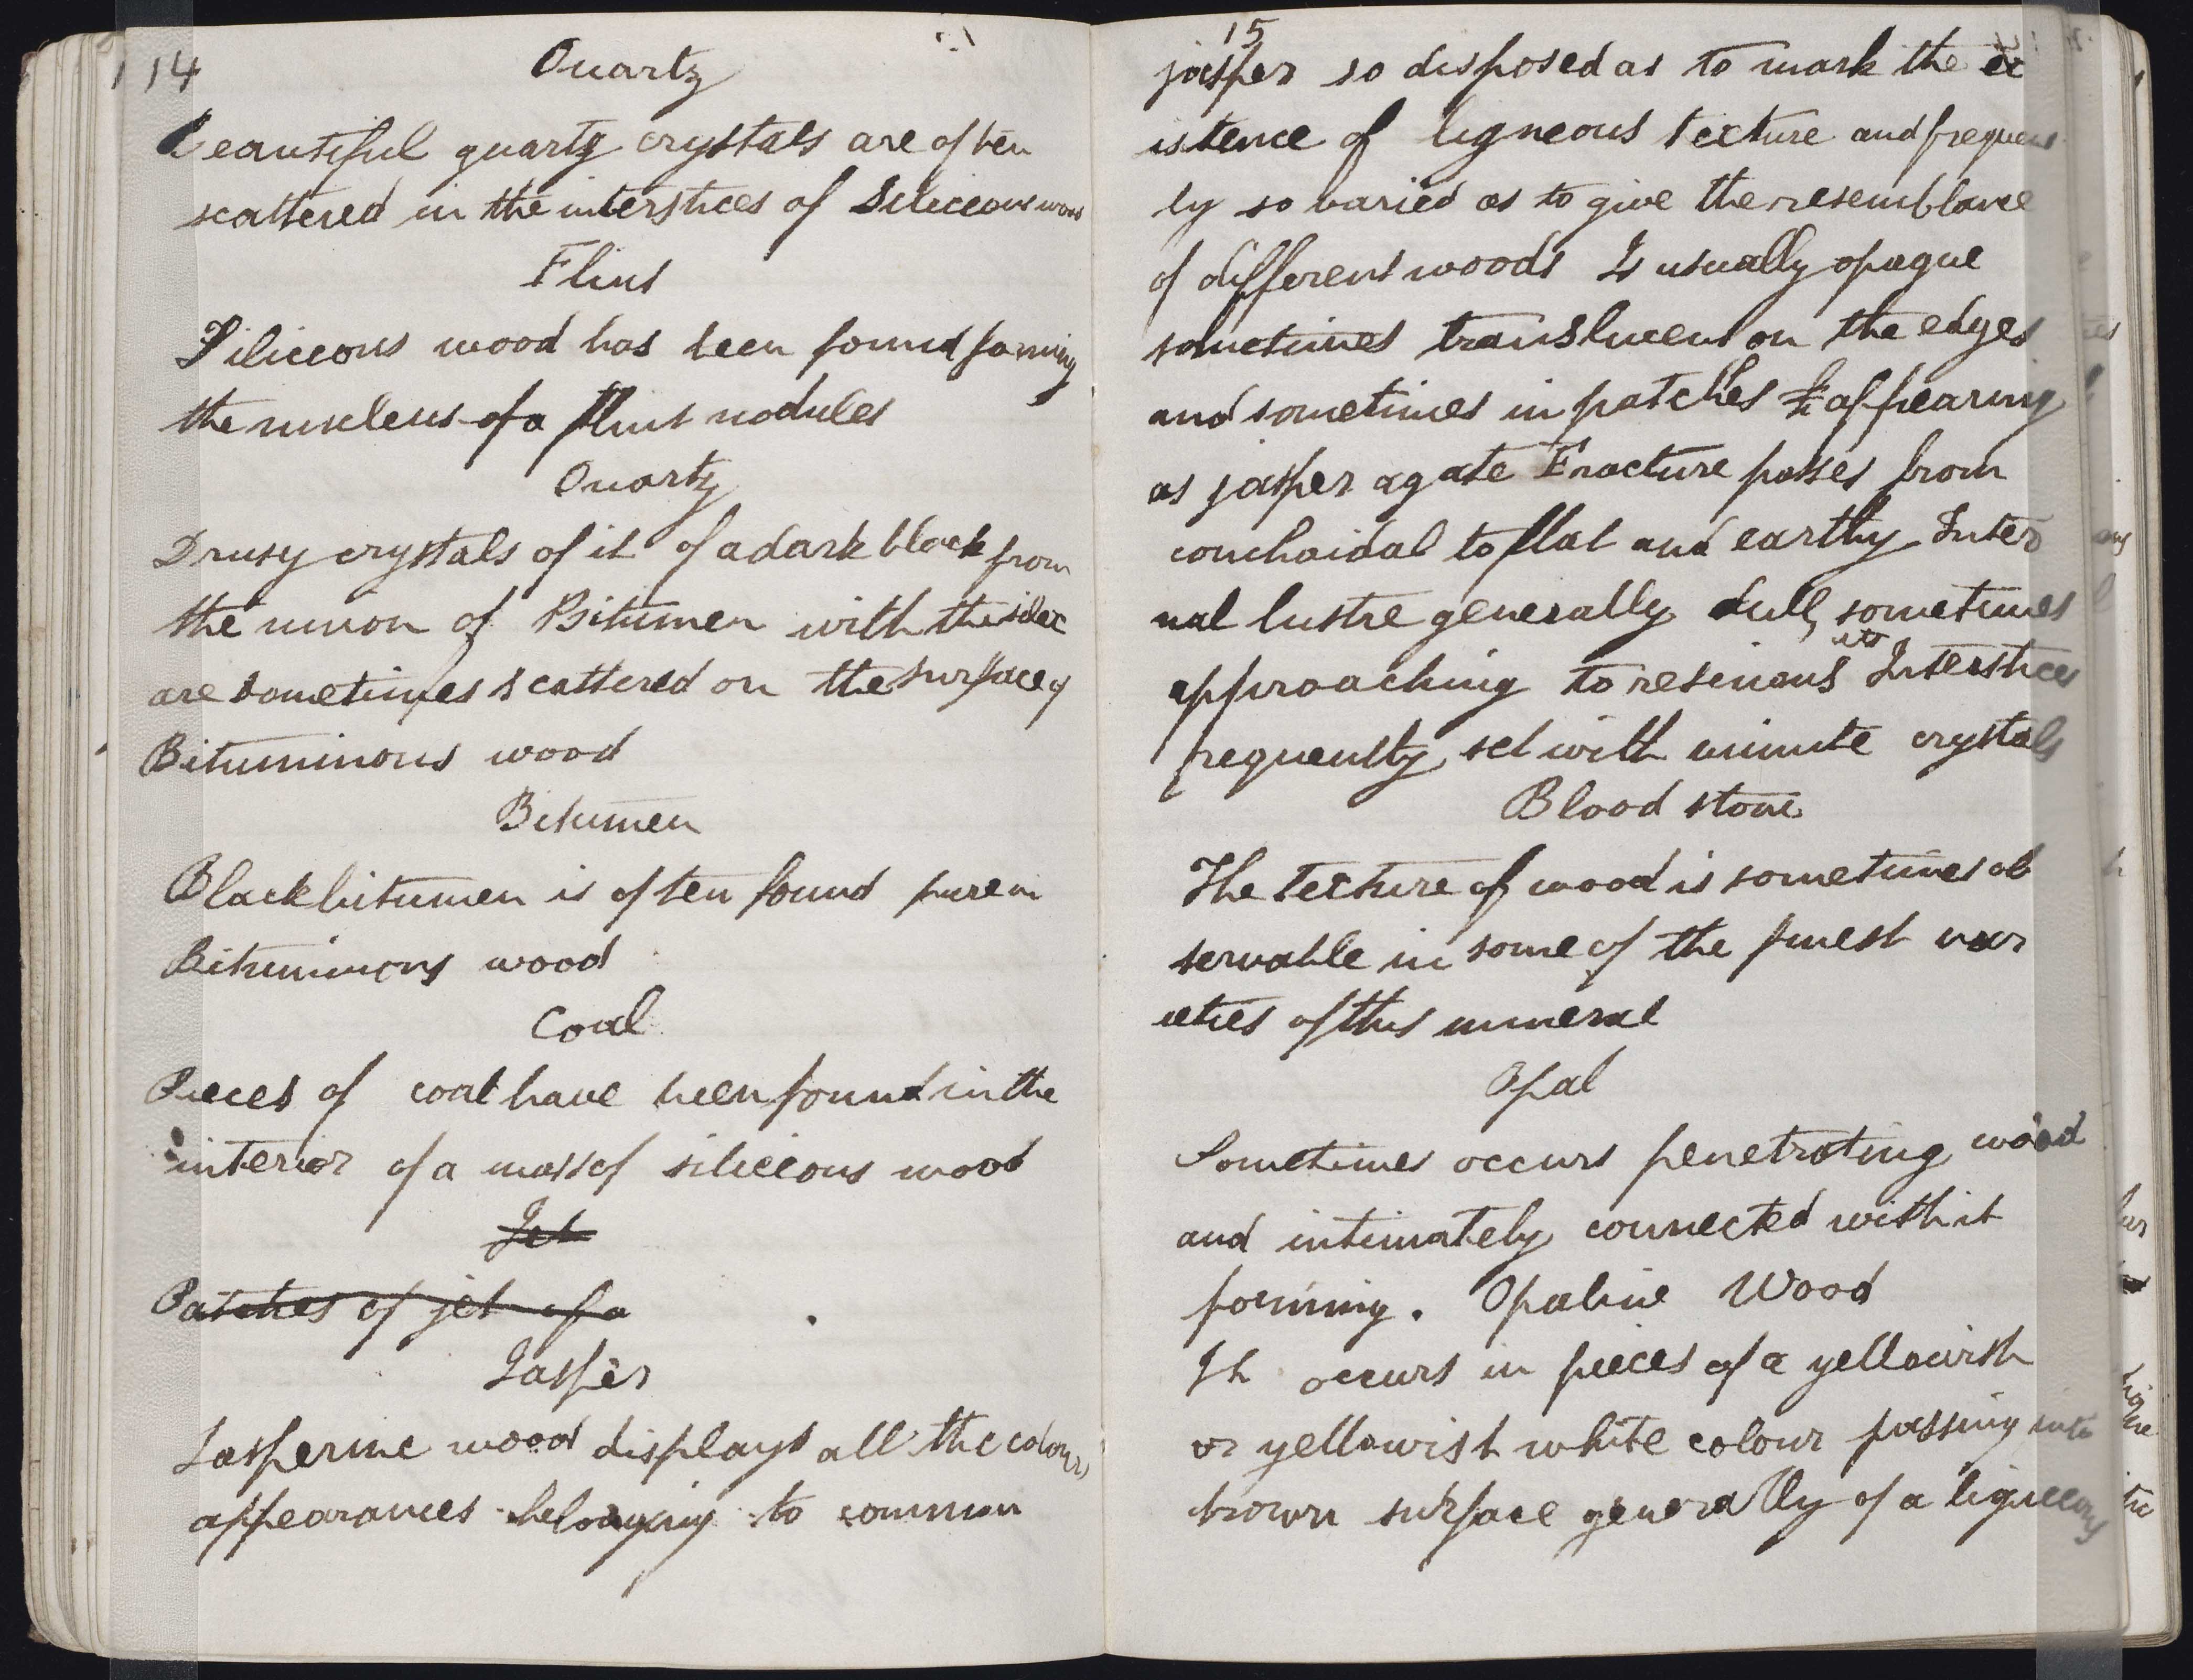 14
Quartz
Beautiful quartz crystals are often
scattered in the interstices of Siliceous wood
Flint
Siliceous wood has been found forming
the nucleus of a flint nodules
Quartz
Drusy crystals of it of a dark black from
the union of Bitumen with the silex
are sometimes scattered on the surface of
Bituminous wood
Bitumen
Black bitumen is often found pure in
Bituminous wood
Coal
Pieces of coal have been found in the
interior of a mass of siliceous wood
Jet
Patches of jet of a
Jasper
Jasperine wood displays all the colours
appearances belonging to common
15
jasper so disposed as to mark the ex
istence of ligneous texture and frequent
ly so varied as to give the resemblance
of different woods Is usually opaque
sometimes translucent on the edges
and sometimes in patches appearing
as jasper agate Fracture passes from
conchoidal to flat and earthy Inter
nal lustre generally dull, sometimes
approaching to resinous its Interstices
frequently set with minute crystals
Blood stone
The texture of wood is sometimes ob
servable in some of the finest var
ieties of this mineral
Opal
Sometimes occurs penetrating wood
and intimately connected with it
forming. Opaline Wood
It occurs in pieces of a yellowish
or yellowish white colour passing into
brown surface generally of a ligneous